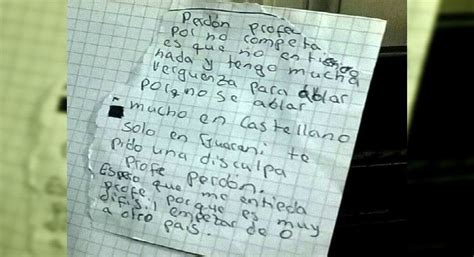 Perdón profe
por no completa
es que no entiendo
nada y tengo mucha
verguenza para ablar
porqno se ablar
mucho en Castellano
solo en Guarani te
pido una disculpa
Profe Perdón.
Espero que me entieda
profe porque es muy
difisil empezar de 0
a otro pais.